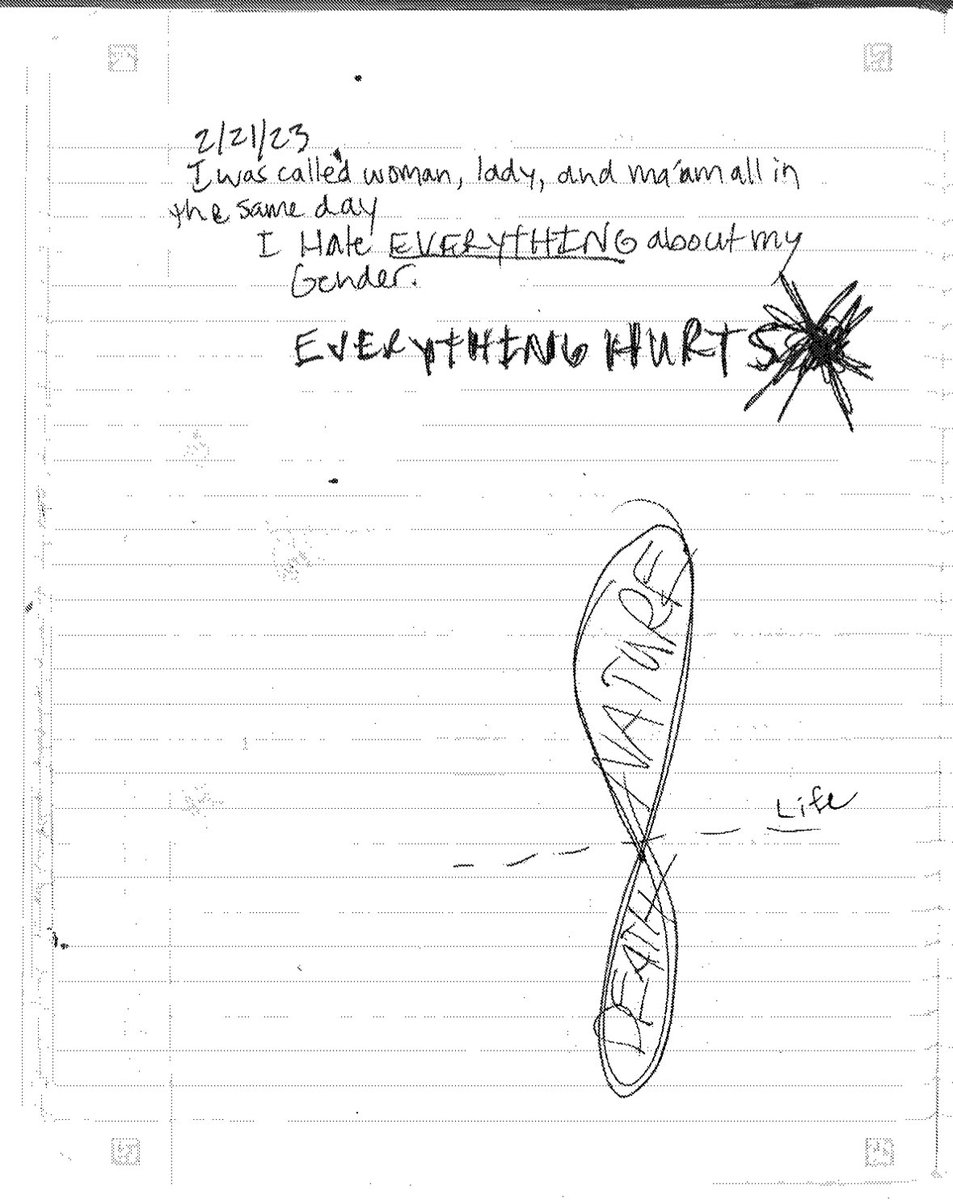 2/21/23
I was called woman, lady, and ma'am all in
the same day
I Hate EVERYTHING about my
Gender.
EVERYTHING HURTS
NATURE
Life
DEATH